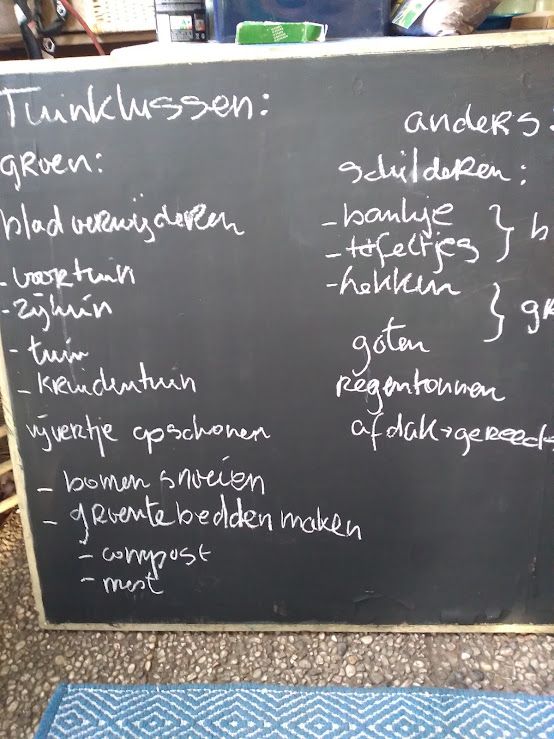 Tuinklussen:
groen:
blad verwijderen
- voortuin
- zijtuin
- tuin
- kruidentuin
vijvertje opschonen
- bomen snoeien
- groente bedden maken
- compost
- mest
anders:
schilderen:
- bankje
- tafeltjes
- hekken
goten
regentonnen
afdak →